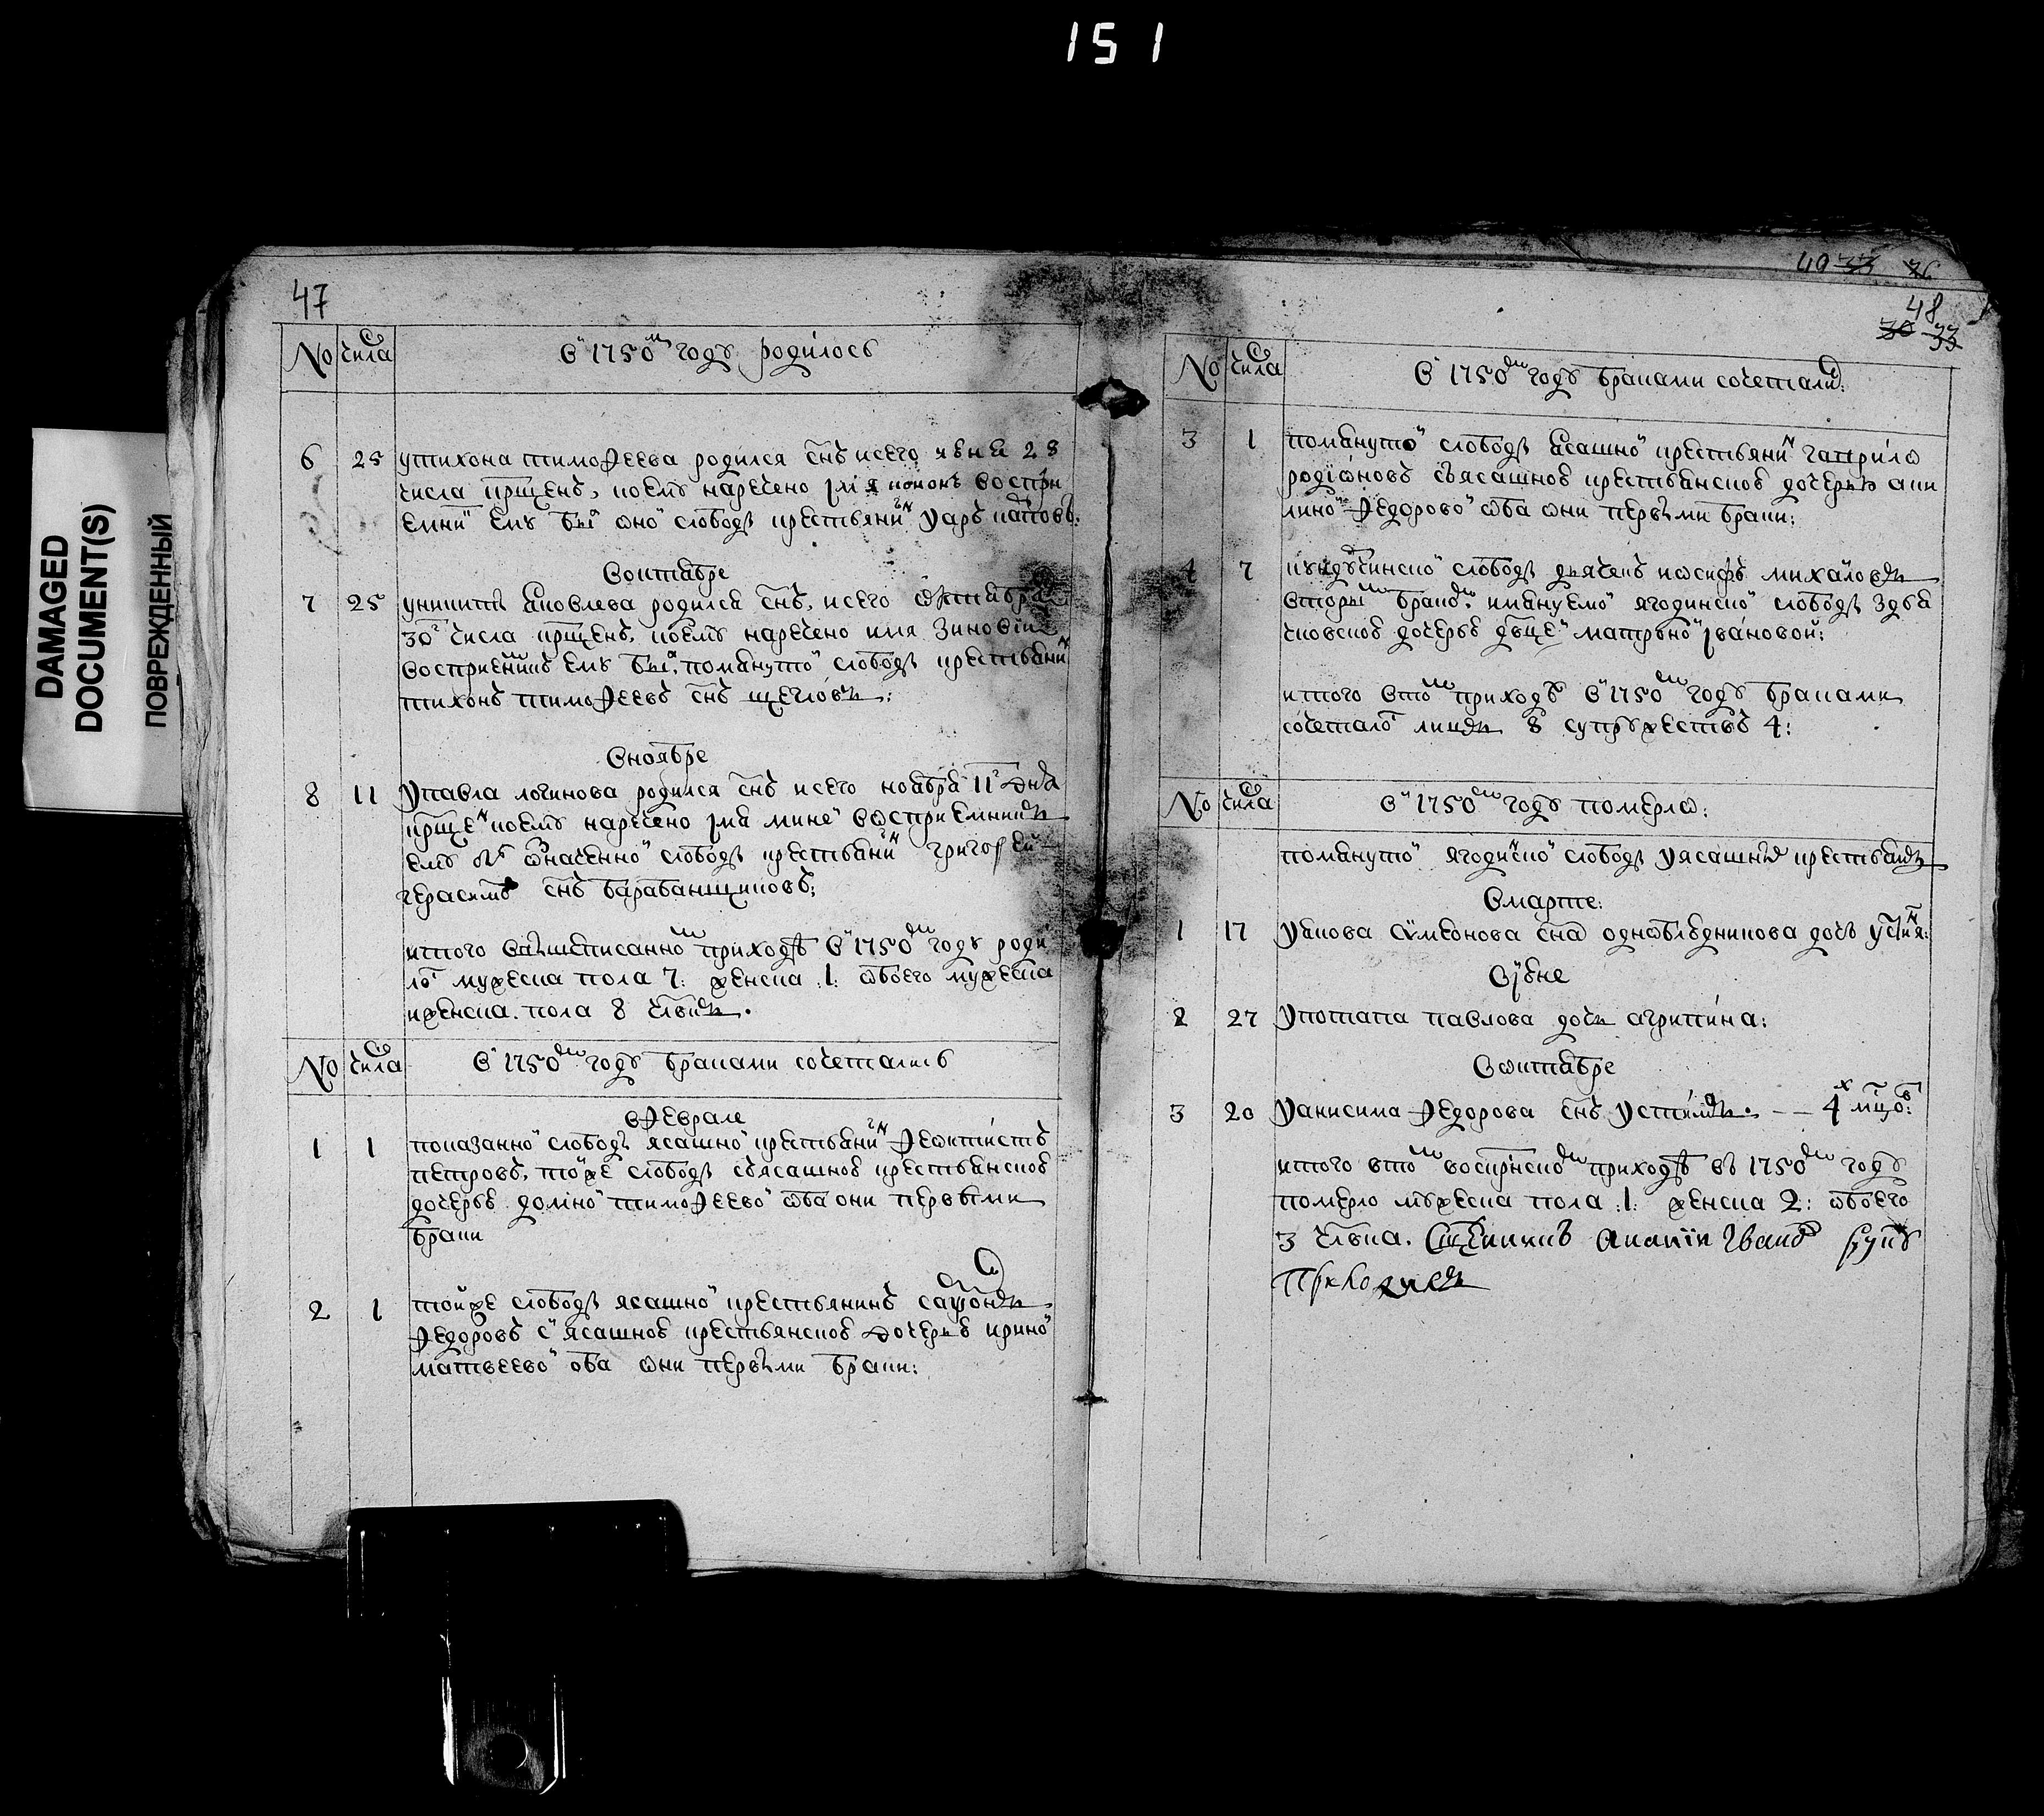 151
DAMAGED
DOCUMENT(S)
ПОВРЕЖДЕННЫЙ
47
No числа в 1750м году родилось
6 25 утихона тимофеева родился снъ исего июня 28
числа крщенъ, коему наречено імя кононъ воспри
емни ему бы оно слободы крестьянинъ уаръ
воктабре
7 25 уникиты яковлева родился снъ, исего октября
30г числа крщенъ, коему наречено имя зиновіи
восприемникъ ему бы помянуто слободы крестьянин
тихонъ тимофеевъ снъ щегловъ:
вноябре
8 11 упавла логинова родился снъ исего ноября 11г дня
крщен коему наречено імя мине восприемникъ
ему означенно слободы крестьянинъ григорей
герасимъ снъ барабанщиковъ;
итого вышеписанномъ приходе в 1750м году роди
ло мужеска пола 7: женска :1: обоего мужеска
иженска. пола 8 члвкъ.
No числа в 1750м году браками сочетались
вфеврале
1 1 показанно слободы ясашно крестьянинъ феоктистъ
петровъ, тоже слободы съясашною крестьянскою
дочерью домно тимофеево оба они первыми
браки
2 1 тойже слободы ясашно крестьянинъ
федоровъ с ясашною крестьянскою дочерью ирино
матвеево оба они первыми браки:
49 33 26
48
30 33
No числа в 1750м году браками сочетались:
3 1 помянуто слободы ясашно крестьянин гаврило
родіоновъ съясашною крестьянскою дочерью аки
лино федорово оба они первыми браки:
4 7 слободы дьячекъ иосифъ михаловъ
вторым браком имянуемо ягодинско слободы
дочерью двце матрено івановой:
итого втом приходе в 1750м году браками
сочетало лицъ 8 супружествъ 4:
No числа в 1750м году померло:
помянуто ягодинско слободы уясашных крестьянъ
вмарте:
1 17 уякова сѵмеонова сна дочь
віюне
2 27 употапа павлова дочь агрипина:
воктабре
3 20 уанисима федорова снъ -- 4х мцов:
итого втом воскрнском приходе въ 1750м году
померло мужеска пола :1: женска 2: обоего
3 члвка. Сщенникъ Ананіи Іванов руку
приложилъ